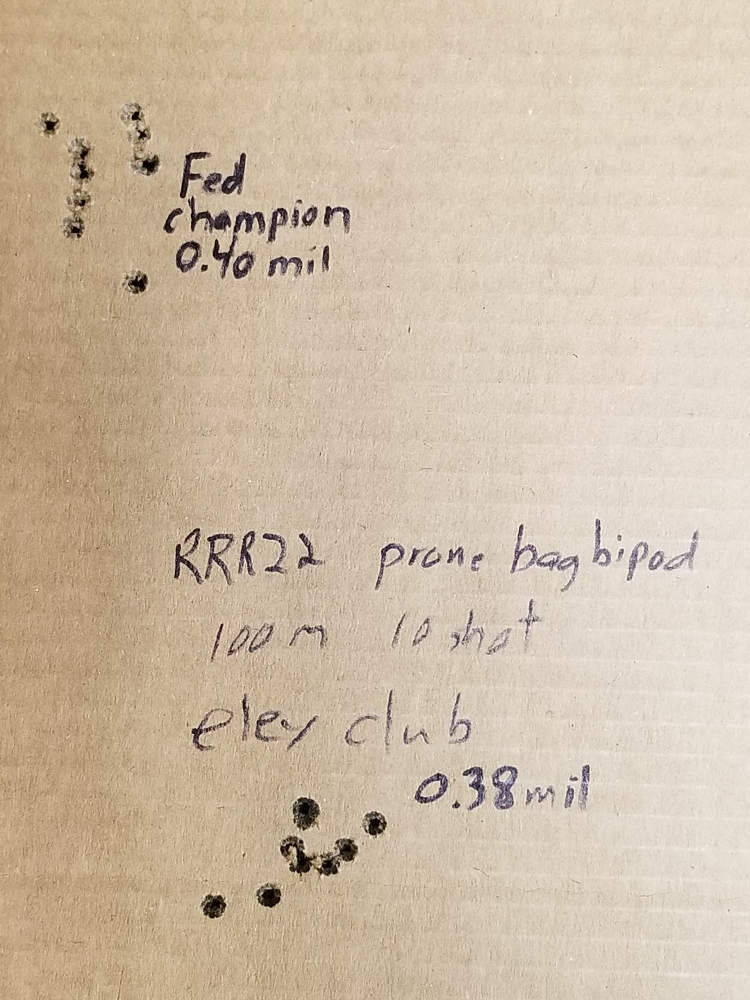 Fed
champion
0.40 mil
RRR22 prone bag bipod
100 m 10 shot
eley club
0.38 mil